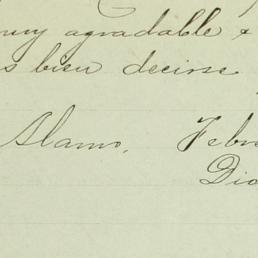 muy agradable &
s bien decirse
Alamo, Febr
Dio